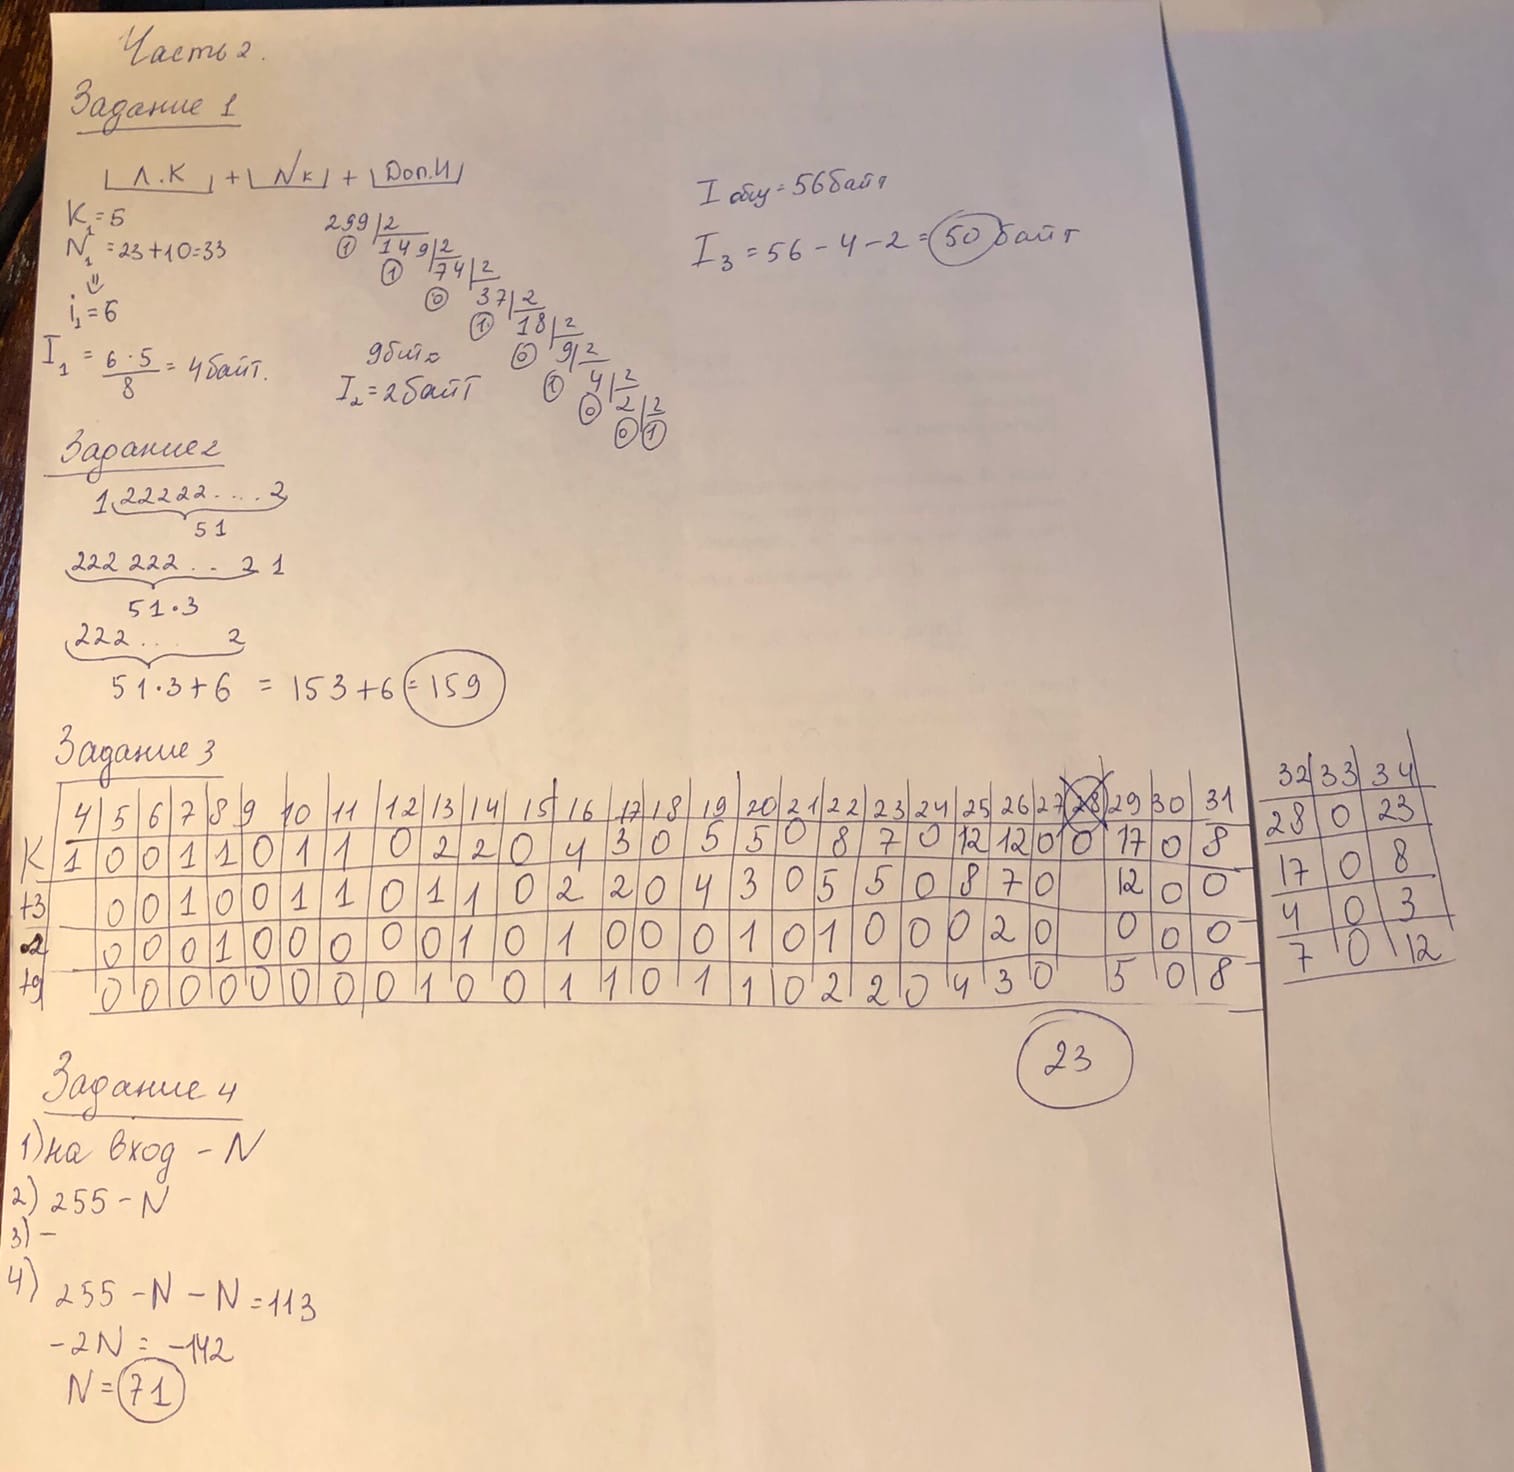 Часть 2.
Задание 1
Л.К + Nк + Доп.И
K₁=5
N₁=23+10=33
⇓
i₁=6
I₁ = 6·5/8 = 4 байт.
299|2
① 149|2
① 74|2
⓪ 37|2
① 18|2
⓪ 9|2
① 4|2
⓪ 2|2
⓪ ①
9 бит
I₂=2 байт
I общ=56 байт
I₃=56-4-2=50 байт
Задание 2
1 22222....2
51
222 222... 2 1
51·3
222.... 2
51·3+6 = 153+6=159
Задание 3
4 5 6 7 8 9 10 11 12 13 14 15 16 17 18 19 20 21 22 23 24 25 26 27 28 29 30 31 32 33 34
K 1 0 0 1 1 0 1 1 0 2 2 0 4 3 0 5 5 0 8 7 0 12 12 0 0 17 0 8 28 0 23
+3 0 0 1 0 0 1 1 0 1 1 0 2 2 0 4 3 0 5 5 0 8 7 0 12 0 0 17 0 8
·2 0 0 0 1 0 0 0 0 0 1 0 1 0 0 0 1 0 1 0 0 0 2 0 0 0 0 4 0 3
+9 0 0 0 0 0 0 0 0 1 0 0 1 1 0 1 1 0 2 2 0 4 3 0 5 0 8 7 0 12
23
Задание 4
1) на вход - N
2) 255-N
3) -
4) 255-N-N=113
-2N=-142
N=71